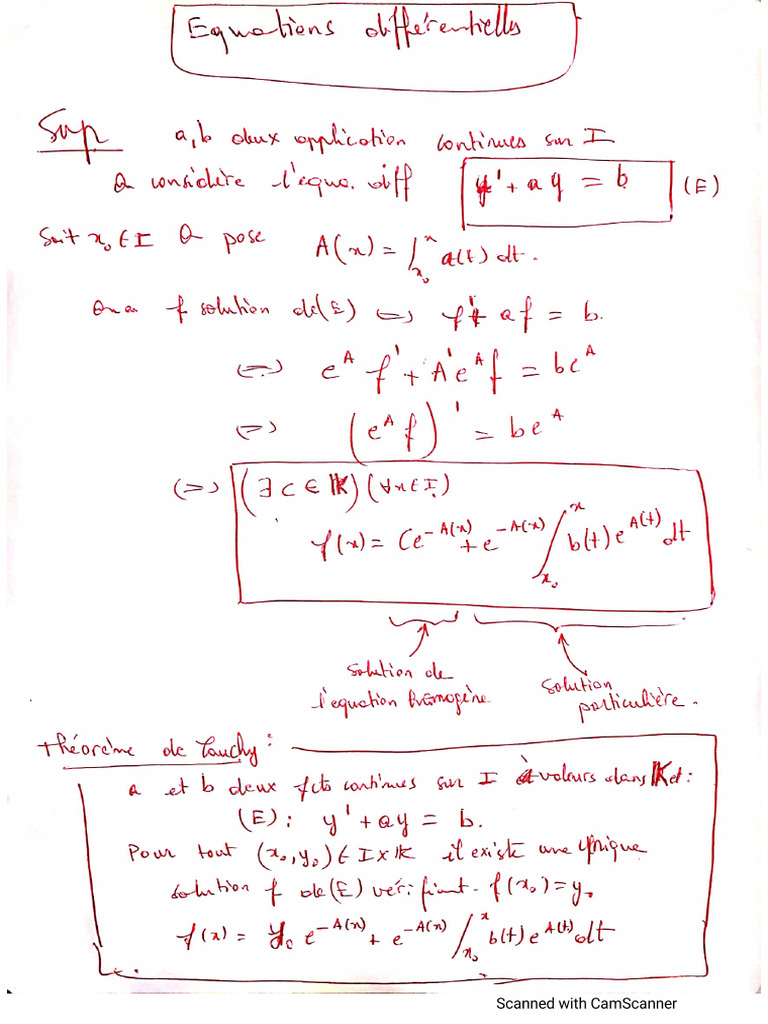 Equations différentielles
Sup a, b deux application continues sur I
On considère l'équa. diff y' + a y = b (E)
Soit x₀ ∈ I On pose A(x) = ∫_{x₀}^{x} a(t) dt.
On a f solution de (E) ⇔ f' + a f = b.
⇔ e^A f' + A' e^A f = b e^A
⇔ (e^A f)' = b e^A
⇔ (∃ C ∈ 𝕂) (∀x ∈ I)
f(x) = C e^{-A(x)} + e^{-A(x)} ∫_{x₀}^{x} b(t) e^{A(t)} dt
solution de solution
l'equation homogène particulière.
théorème de Cauchy :
a et b deux fcts continues sur I à valeurs dans 𝕂 et :
(E) : y' + a y = b.
Pour tout (x₀, y₀) ∈ I × 𝕂 il existe une unique
solution f de (E) vérifiant f(x₀) = y₀
f(x) = y₀ e^{-A(x)} + e^{-A(x)} ∫_{x₀}^{x} b(t) e^{A(t)} dt
Scanned with CamScanner